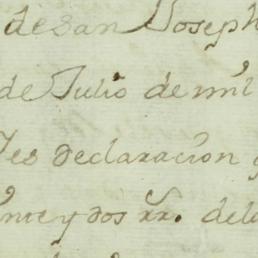 de san Joseph
de Julio de mil
es declaracion
nte y dos rr. del